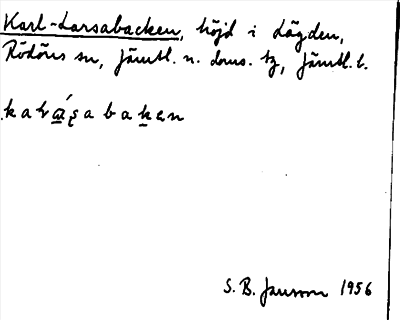 Karl-Larsabacken, höjd i Lägden,
Rödöns sn, Jämtl. n. doms. tg, Jämtl. l.
S. B. Janson 1956